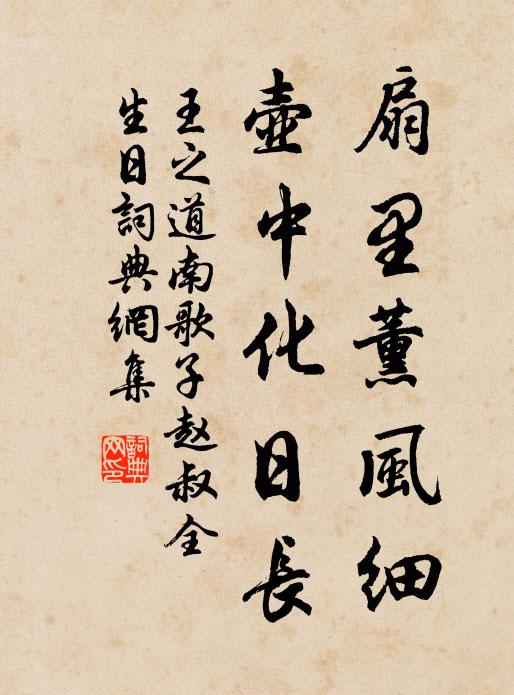 扇里薰風細
壺中化日長
王之道南歌子赵叔全
生日詞典網集
詞典網印